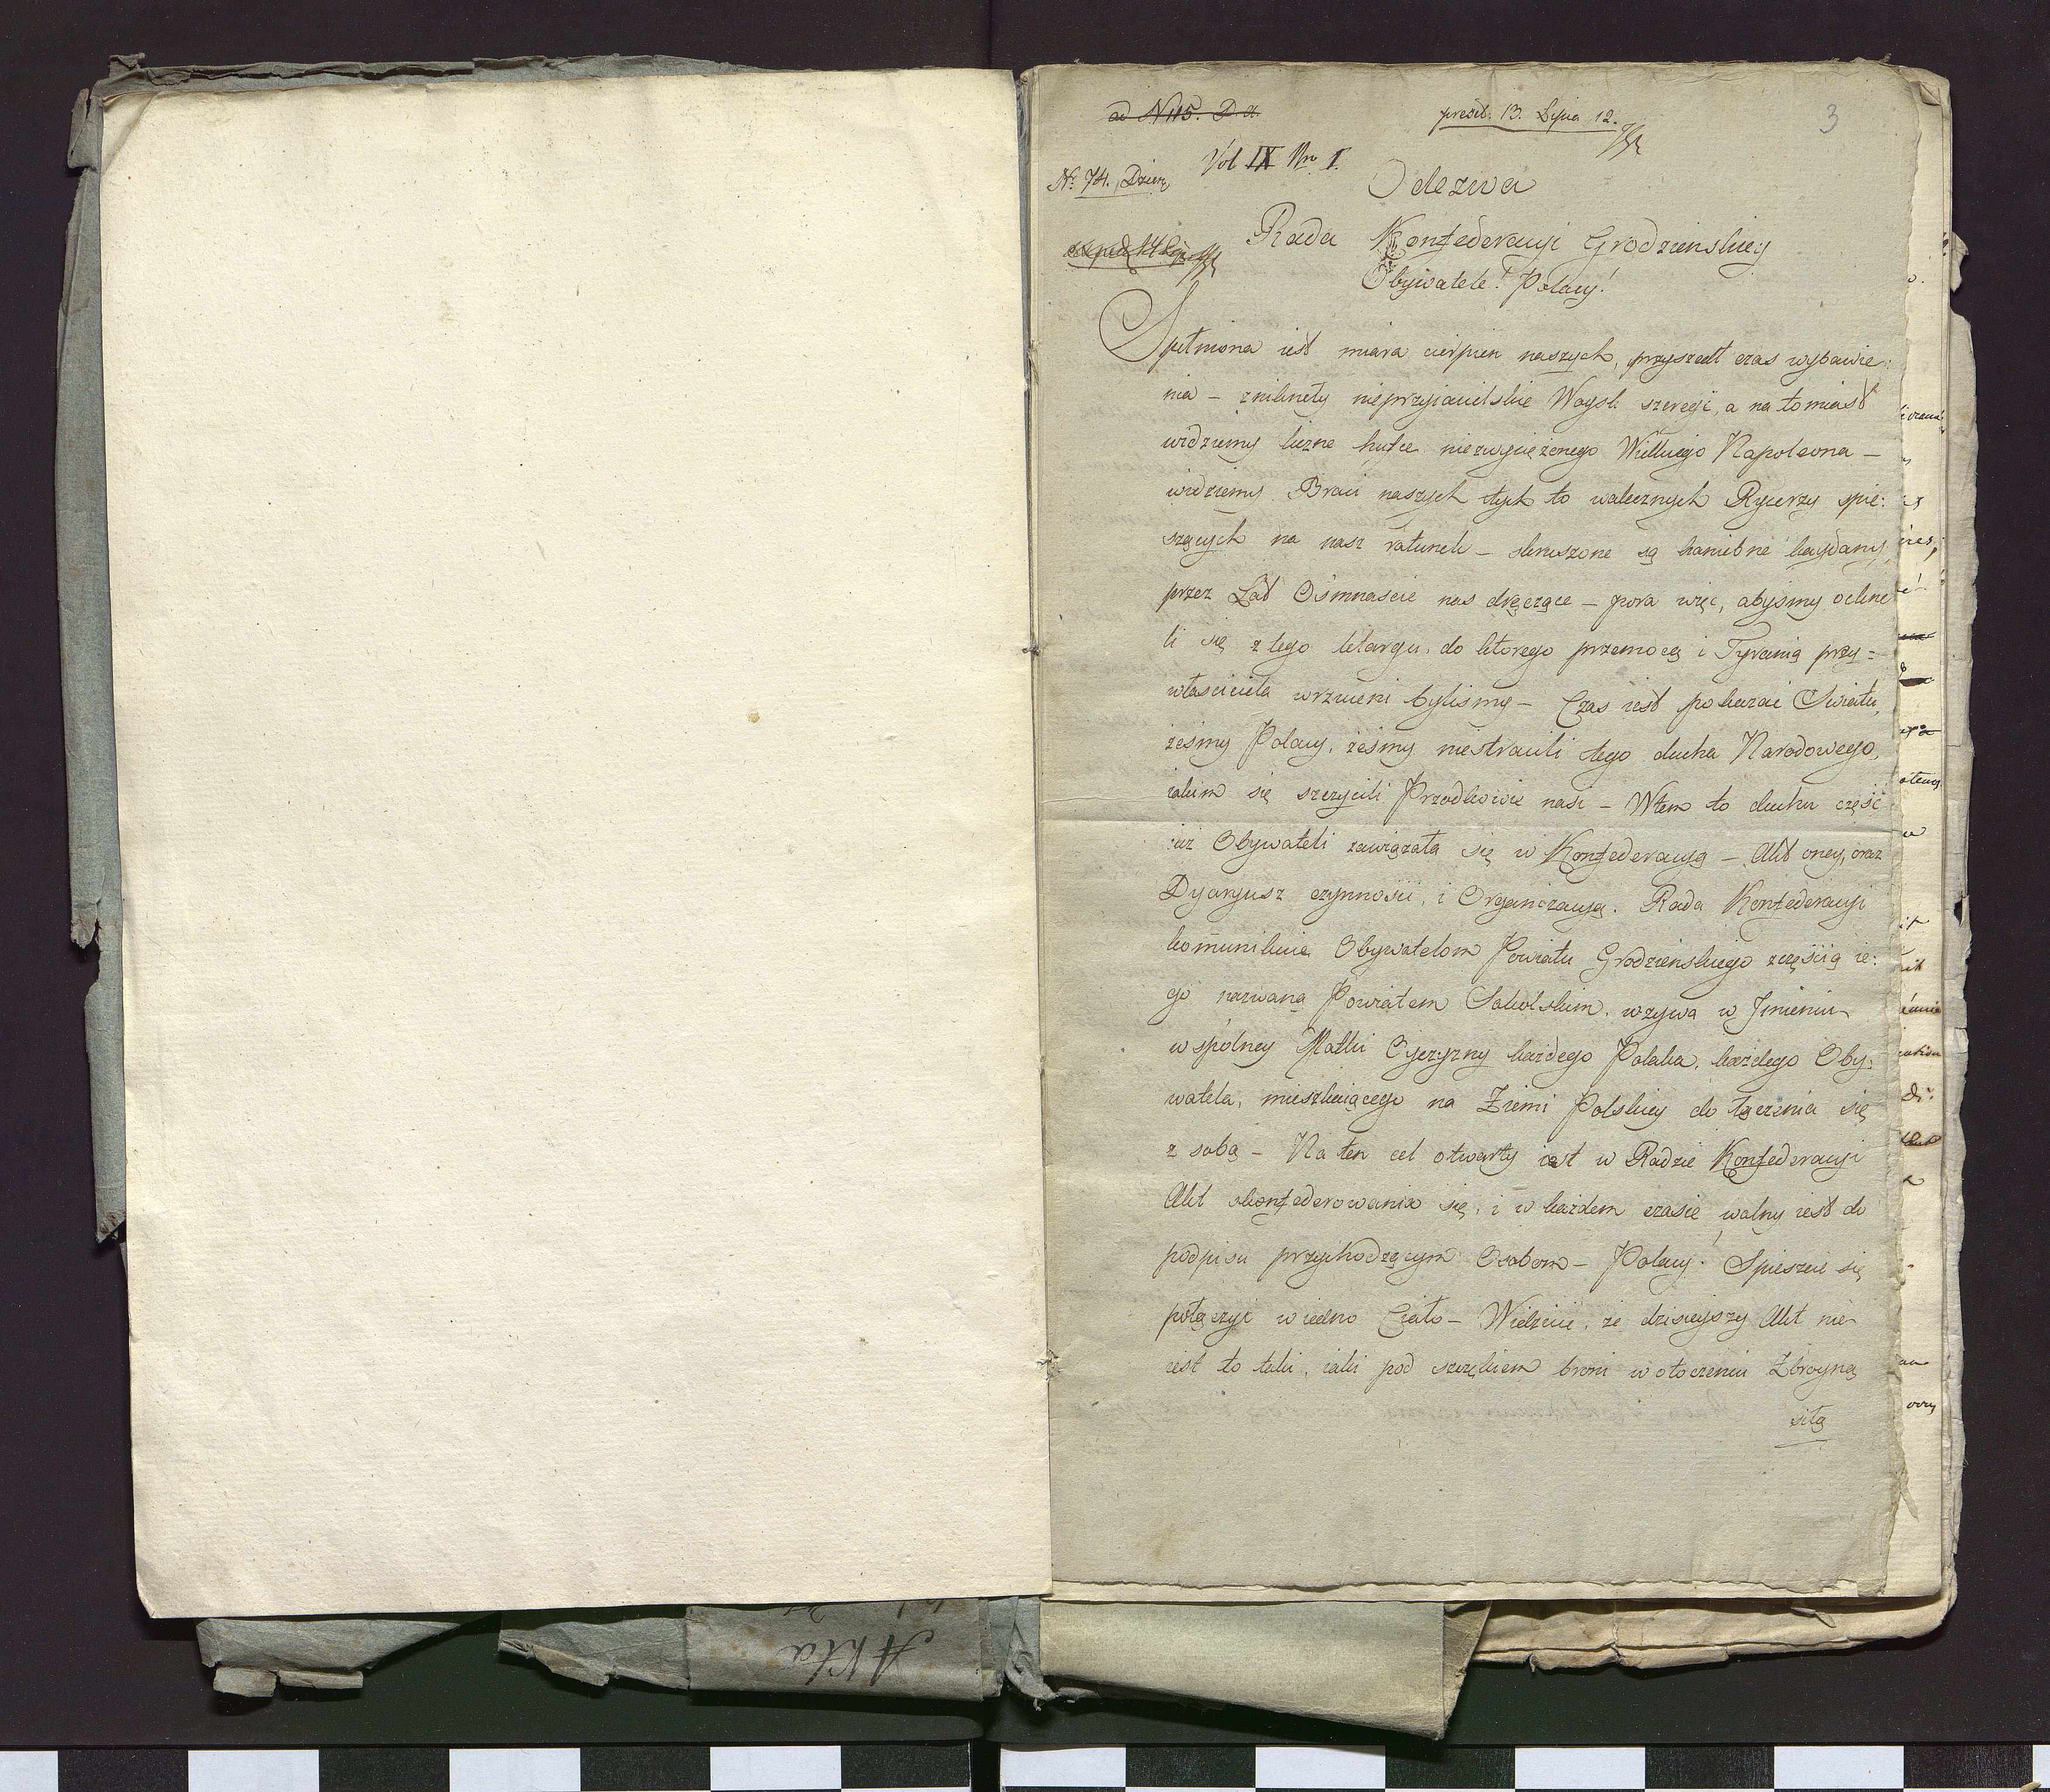 ad N 115. D. z.
prezt. 13. Lipca 12.
3
Vol IX Nro I.
Nº 74. Dzien
Odezwa
Rada Konfederacyi Grodzienskiey
Obywatele! Polacy!
Spełniona iest miara cierpien naszych, przyszedł czas wybawie:
nia – zniknęły nieprzyiacielskie Woysk szeregi, a natomiast
widziemy liczne hufce niezwyciężonego Wielkiego Napoleona –
widziemy Braci naszych tych to walecznych Rycerzy spie:
szących na nasz ratunek – skruszone są haniebne kaydany,
przez Lat Ośmnaście nas dręczące – pora więc, abyśmy ockne
li się z tego letargu, do ktorego przemocą i Tyranią przy=
właściciela wrzuceni byliśmy – Czas iest pokazać Swiatu,
żeśmy Polacy, żeśmy niestracili tego ducha Narodowego,
iakim się szczycili Przodkowie nasi – Wtem to duchu część
iuż Obywateli zawiązała się w Konfederacyą – Akt oney, oraz
Dyaryusz czynności, i Organizacyą. Rada Konfederacyi
kom̃unikuie Obywatelom Powiatu Grodzienskiego zczęścią ie:
go nazwaną Powiatem Sokolskim, wzywa w Jmieniu
wspólney Matki Oyczyzny każdego Polaka, każdego Oby:
watela, mieszkaiącego na Ziemi Polskiey do łączenia się
z sobą – Na ten cel otwarty iest w Radzie Konfederacyi
Akt skonfederowania się, i w każdem czasie wolny iest do
podpisu przychodzącym Osobom – Polacy! Spieszcie się
połączyć w iedno Ciało – Widzicie, że dzisieyszy Akt nie
iest to taki, iaki pod szczękiem broni w otoczeniu Zbroyną
siłą
Akta